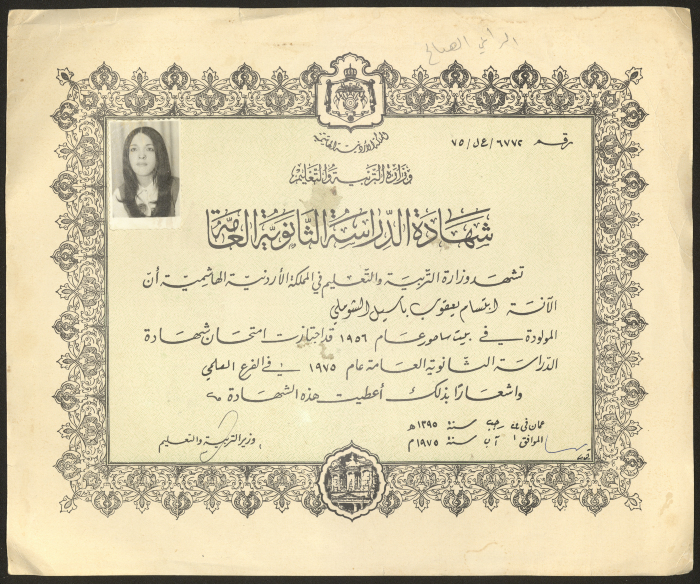 الراعي الصالح
المملكة الأردنية الهاشمية
رقم ٦٧٧٢/ع ل/٧٥
وزارة التربية والتعليم
شهادة الدراسة الثانوية العامة
تشهد وزارة التربية والتعليم في المملكة الأردنية الهاشمية أن
الآنسة ابتسام يعقوب باسيل الشوملي
المولودة في بيت ساحور عام ١٩٥٦ قد اجتازت امتحان شهادة
الدراسة الثانوية العامة عام ١٩٧٥ في الفرع العلمي
واشعارًا بذلك أعطيت هذه الشهادة
عمان في رجب سنة ١٣٩٥ هـ
الموافق ١ آب سنة ١٩٧٥ م
وزير التربية والتعليم